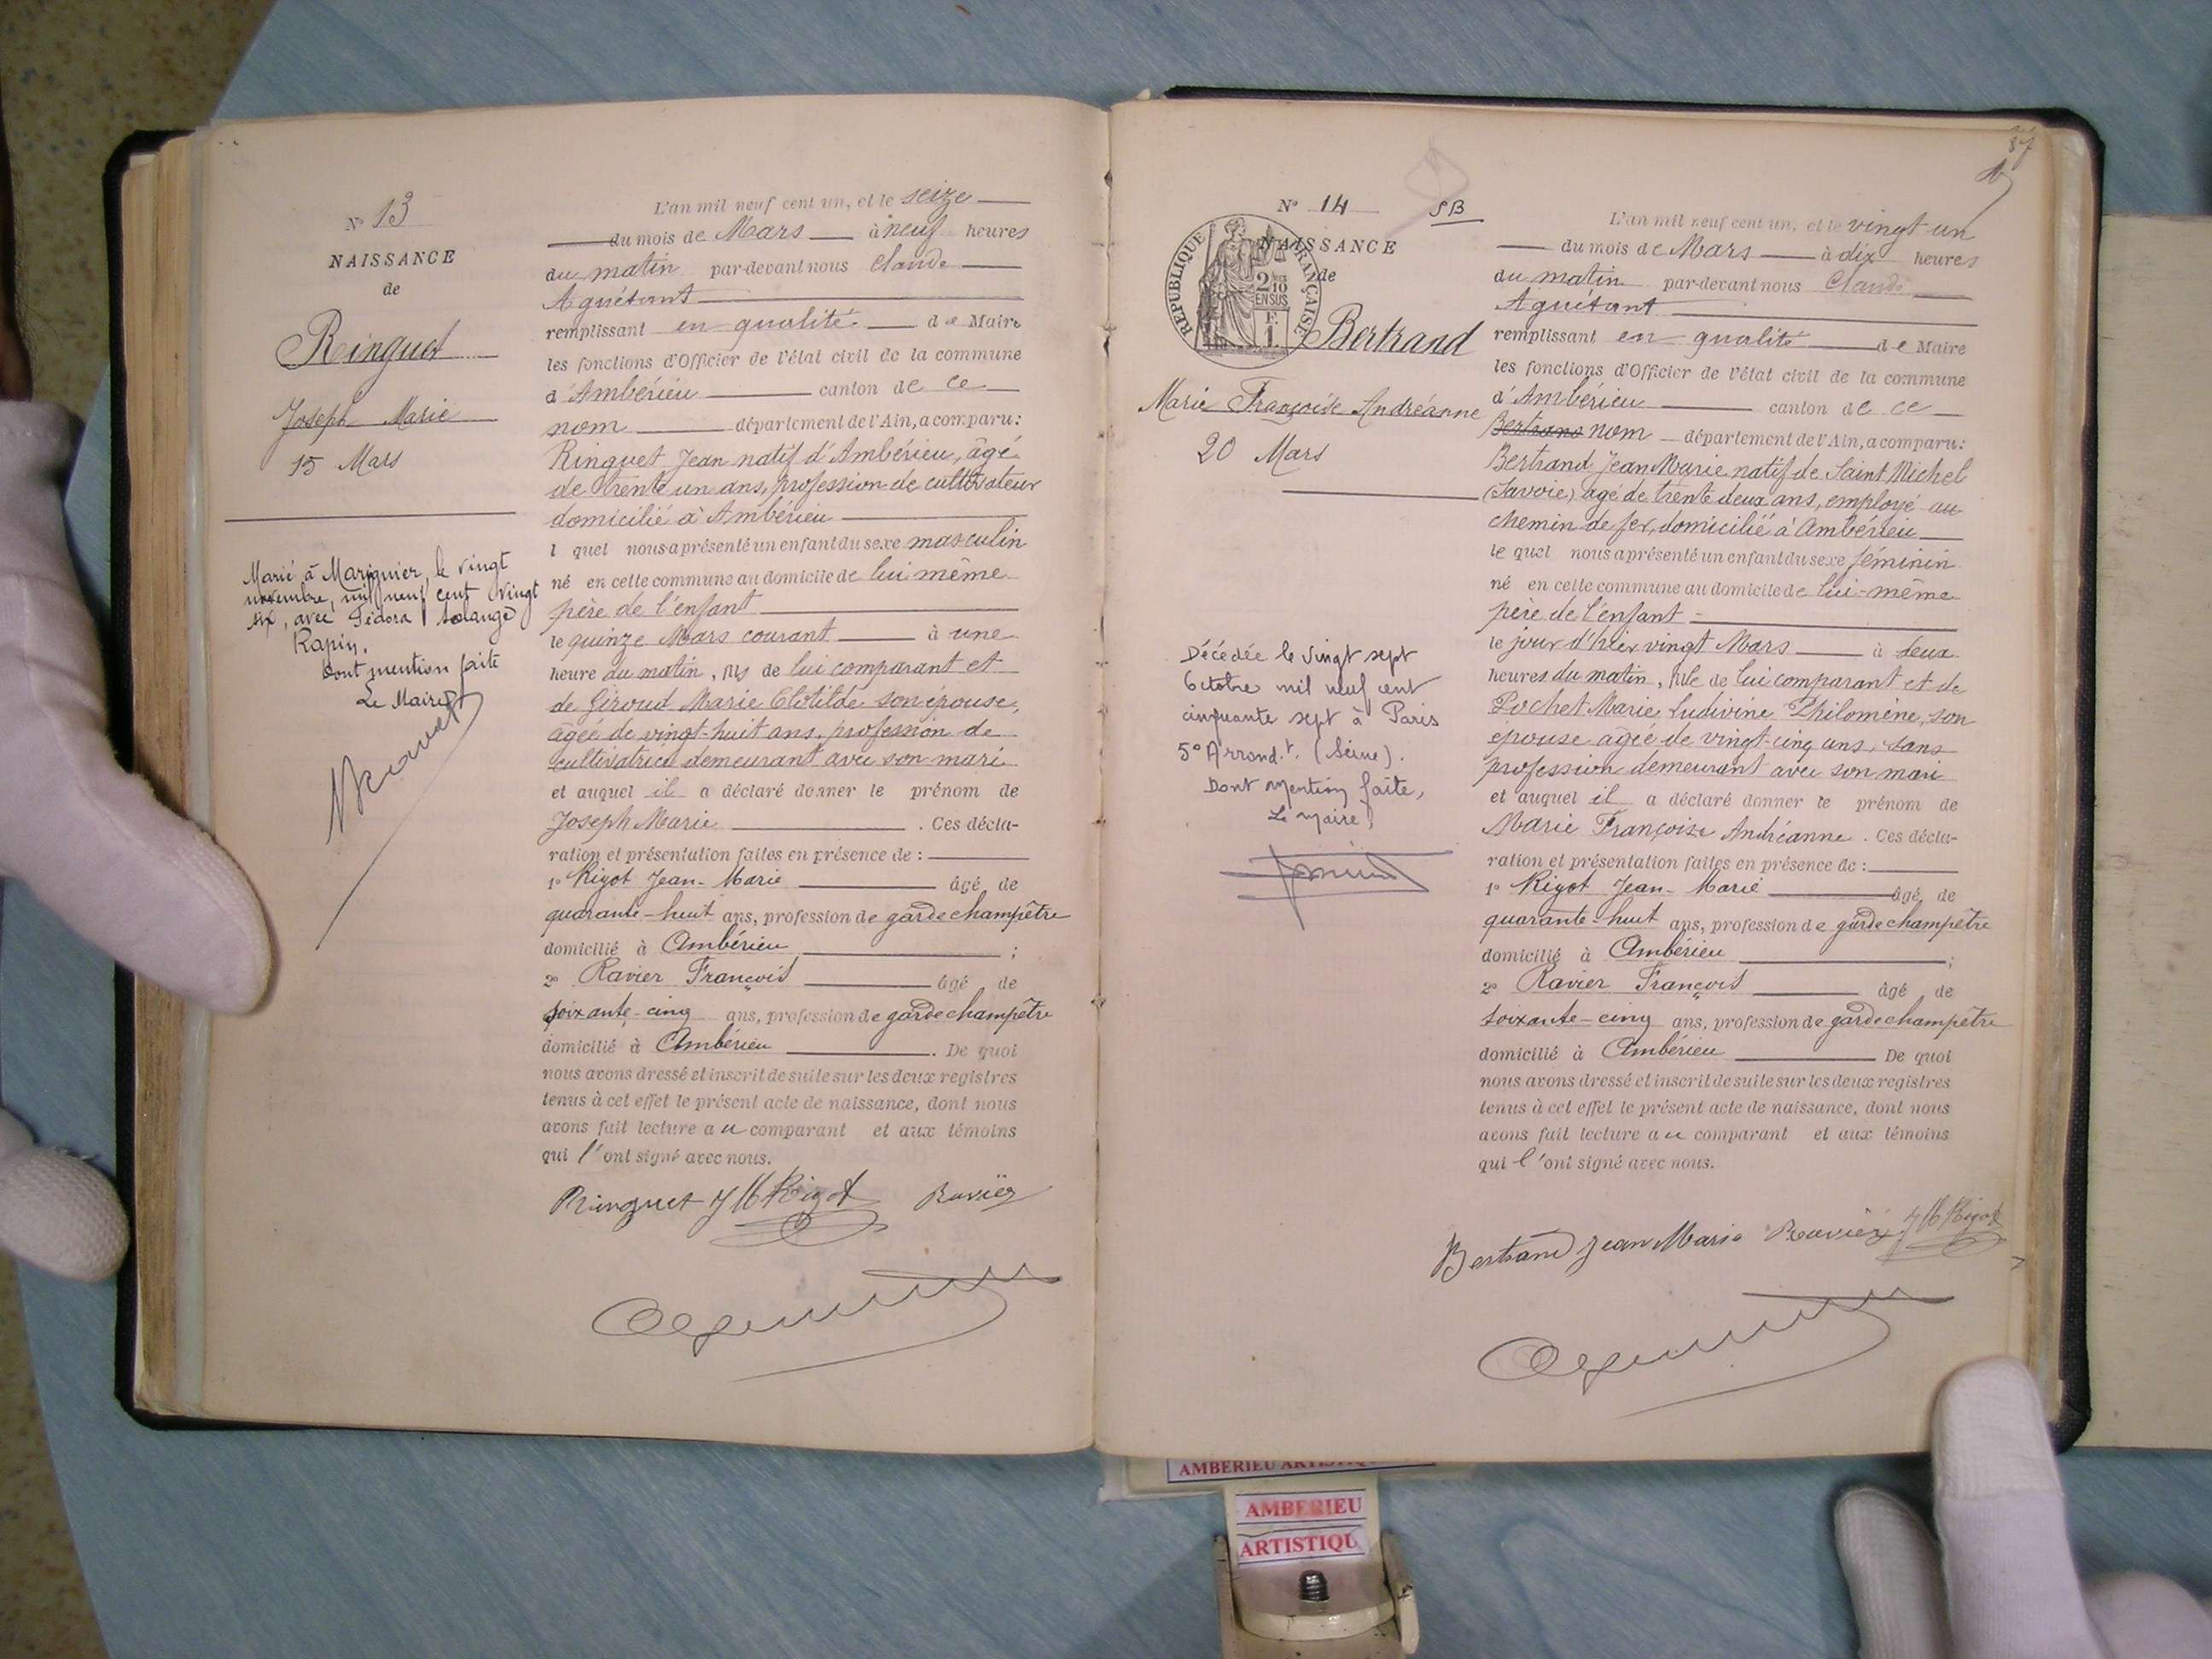 N° 13
NAISSANCE
de
Ringuet
Joseph Marie
15 Mars
Marié à Marignier, le vingt
novembre, mil neuf cent vingt
six, avec Fédora Solange
Rapin.
Dont mention faite
Le Maire
L'an mil neuf cent un, et le seize
du mois de Mars à neuf heures
du matin par-devant nous Claude
Aguétant
remplissant en qualité de Maire
les fonctions d'Officier de l'état civil de la commune
d'Ambérieu canton de ce
nom département de l'Ain, a comparu:
Ringuet Jean natif d'Ambérieu, âgé
de trente un ans, profession de cultivateur
domicilié à Ambérieu
l quel nous a présenté un enfant du sexe masculin
né en cette commune au domicile de lui même
père de l'enfant
le quinze Mars courant à une
heure du matin, fils de lui comparant et
de Giroud Marie Clotilde son épouse,
âgée de vingt-huit ans, profession de
cultivatrice demeurant avec son mari
et auquel il a déclaré donner le prénom de
Joseph Marie. Ces décla-
ration et présentation faites en présence de :
1° Rigot Jean-Marie âgé de
quarante-huit ans, profession de garde champêtre
domicilié à Ambérieu ;
2° Ravier François âgé de
soixante-cinq ans, profession de garde champêtre
domicilié à Ambérieu. De quoi
nous avons dressé et inscrit de suite sur les deux registres
tenus à cet effet le présent acte de naissance, dont nous
avons fait lecture au comparant et aux témoins
qui l'ont signé avec nous.
Ringuet JM Rigot Ravier
37
N° 14 SB
NAISSANCE
de
RÉPUBLIQUE FRANÇAISE
2/10
EN SUS
F.
1.
Bertrand
Marie Françoise Andréanne
20 Mars
Décédée le vingt sept
Octobre mil neuf cent
cinquante sept à Paris
5° Arrond.t (Seine).
Dont mention faite,
Le Maire,
L'an mil neuf cent un, et le vingt un
du mois de Mars à dix heures
du matin par-devant nous Claude
Aguétant
remplissant en qualité de Maire
les fonctions d'Officier de l'état civil de la commune
d'Ambérieu canton de ce
Bertrand nom département de l'Ain, a comparu:
Bertrand Jean Marie natif de Saint Michel
(Savoie) âgé de trente deux ans, employé au
chemin de fer, domicilié à Ambérieu
le quel nous a présenté un enfant du sexe féminin
né en cette commune au domicile de lui-même
père de l'enfant
le jour d'hier vingt Mars à deux
heures du matin, fille de lui comparant et de
Pochet Marie Ludivine Philomène, son
épouse âgée de vingt-cinq ans, sans
profession demeurant avec son mari
et auquel il a déclaré donner le prénom de
Marie Françoise Andréanne. Ces décla-
ration et présentation faites en présence de :
1° Rigot Jean-Marie âgé de
quarante-huit ans, profession de garde champêtre
domicilié à Ambérieu ;
2° Ravier François âgé de
soixante-cinq ans, profession de garde champêtre
domicilié à Ambérieu De quoi
nous avons dressé et inscrit de suite sur les deux registres
tenus à cet effet le présent acte de naissance, dont nous
avons fait lecture au comparant et aux témoins
qui l'ont signé avec nous.
Bertrand Jean Marie Ravier JM Rigot
AMBERIEU ARTISTIQ
AMBERIEU
ARTISTIQU